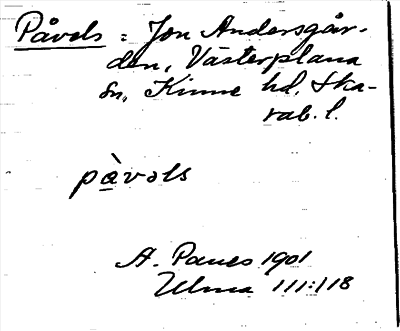 Påvols = Jon Andersgår-
den, Västerplana
sn, Kinne hd, Ska-
rab. l.
pàvols
A. Panes 1901
Ulma 111:118